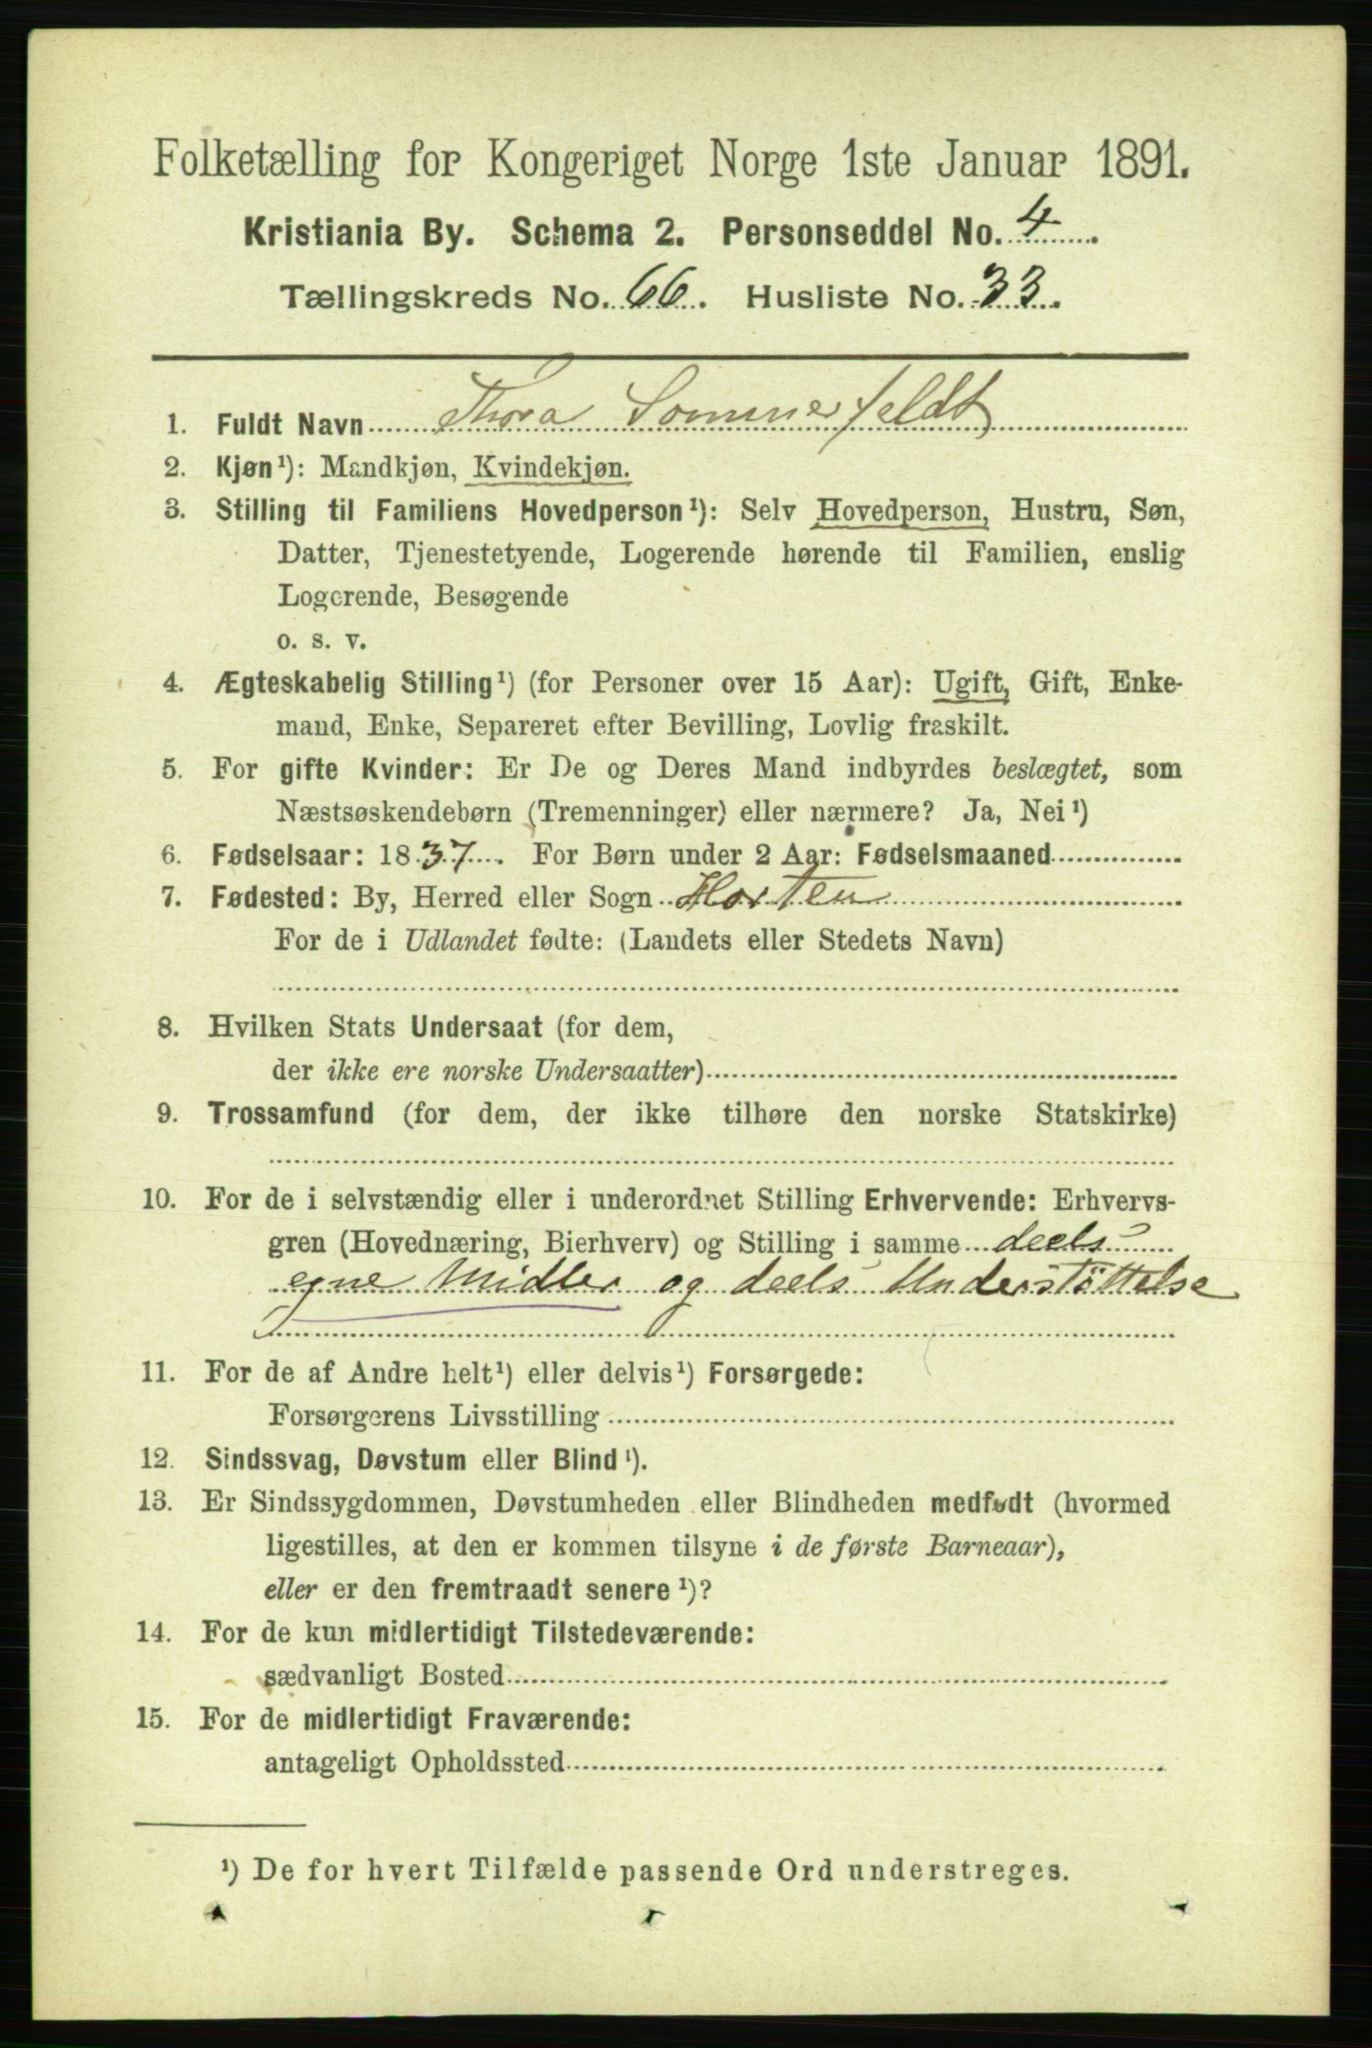 Folketælling for Kongeriget Norge 1ste Januar 1891.
Kristiania By. Schema 2. Personseddel No. 4.
Tællingskreds No. 66. Husliste No. 33.
1. Fuldt Navn Thora Sommerfeldt
2. Kjøn¹): Mandkjøn, Kvindekjøn.
3. Stilling til Familiens Hovedperson¹): Selv Hovedperson, Hustru, Søn,
Datter, Tjenestetyende, Logerende hørende til Familien, enslig
Logerende, Besøgende
o. s. v.
4. Ægteskabelig Stilling¹) (for Personer over 15 Aar): Ugift, Gift, Enke-
mand, Enke, Separeret efter Bevilling, Lovlig fraskilt.
5. For gifte Kvinder: Er De og Deres Mand indbyrdes beslægtet, som
Næstsøskendebørn (Tremenninger) eller nærmere? Ja, Nei¹)
6. Fødselsaar: 1837. For Børn under 2 Aar: Fødselsmaaned
7. Fødested: By, Herred eller Sogn Horten
For de i Udlandet fødte: (Landets eller Stedets Navn)
8. Hvilken Stats Undersaat (for dem,
der ikke ere norske Undersaatter)
9. Trossamfund (for dem, der ikke tilhøre den norske Statskirke)
10. For de i selvstændig eller i underordnet Stilling Erhvervende: Erhvervs-
gren (Hovednæring, Bierhverv) og Stilling i samme deels
egne Midler og deels Understöttelse
11. For de af Andre helt¹) eller delvis¹) Forsørgede:
Forsørgerens Livsstilling
12. Sindssvag, Døvstum eller Blind¹).
13. Er Sindssygdommen, Døvstumheden eller Blindheden medfødt (hvormed
ligestilles, at den er kommen tilsyne i de første Barneaar),
eller er den fremtraadt senere¹)?
14. For de kun midlertidigt Tilstedeværende:
sædvanligt Bosted
15. For de midlertidigt Fraværende:
antageligt Opholdssted
¹) De for hvert Tilfælde passende Ord understreges.